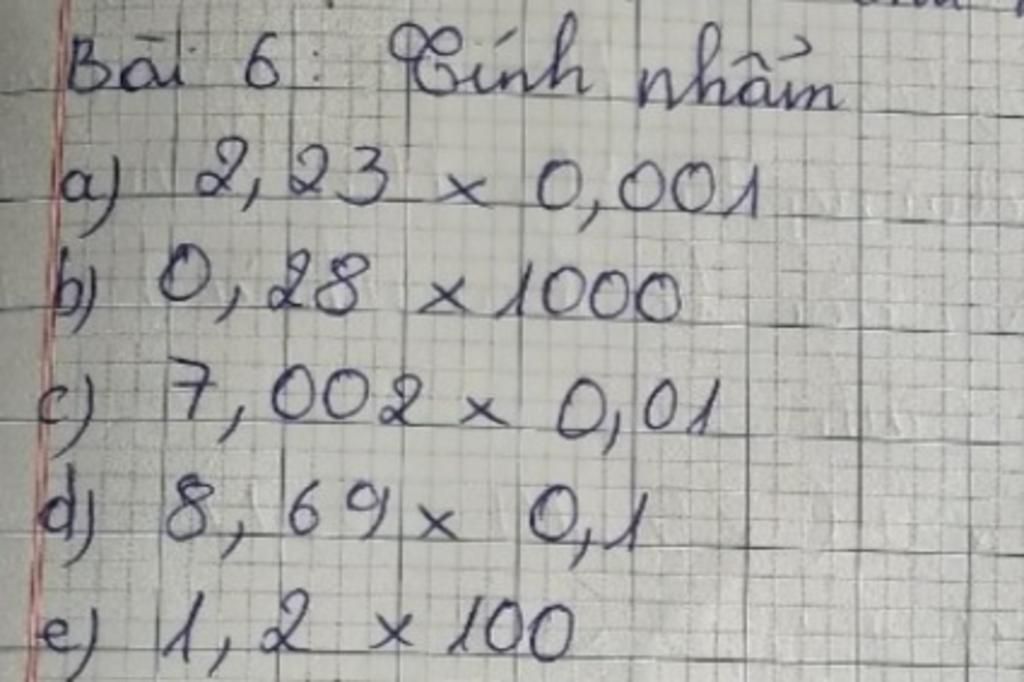 Bài 6: Tính nhẩm
a) 2,23 x 0,001
b) 0,28 x 1000
c) 7,002 x 0,01
d) 8,69 x 0,1
e) 1,2 x 100